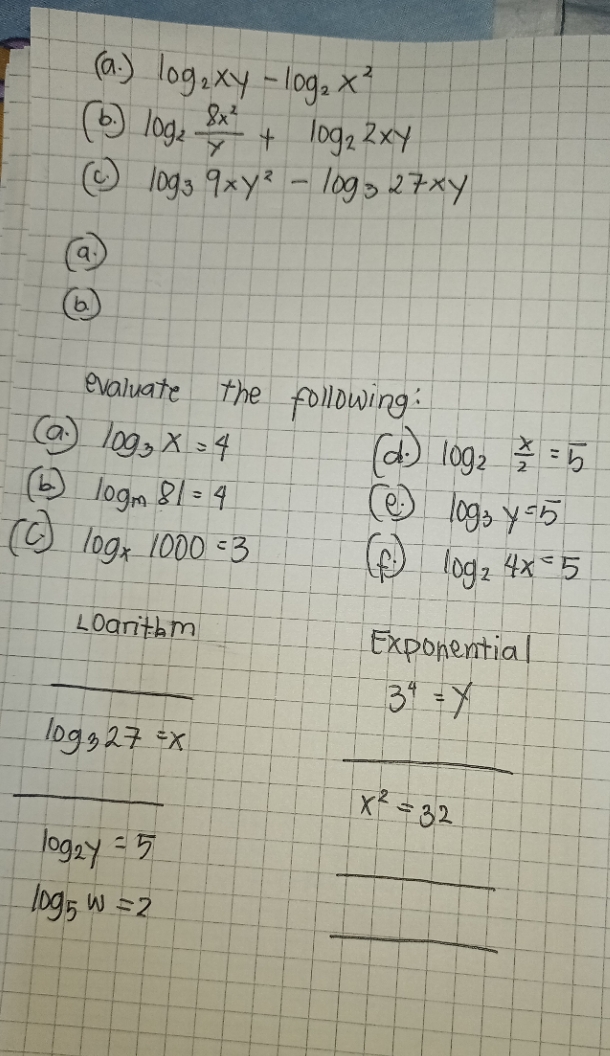 (a.) log₂xy - log₂ x²
(b.) log₂ 8x²/y + log₂ 2xy
(c.) log₃ 9xy² - log₃ 27xy
(a.)
(b.)
evaluate the following:
(a.) log₃ x = 4
(b.) logₘ 81 = 4
(c.) logₓ 1000 = 3
(d.) log₂ x/2 = 5
(e.) log₃ y = 5
(f.) log₂ 4x = 5
Loarithm
Exponential
3⁴ = y
log₃27 = x
x² = 32
log₂y = 5
log₅ w = 2